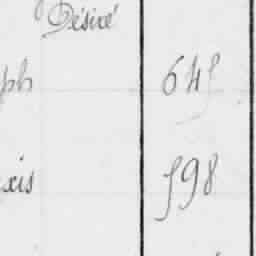 Désiré
ph 645
xis 598